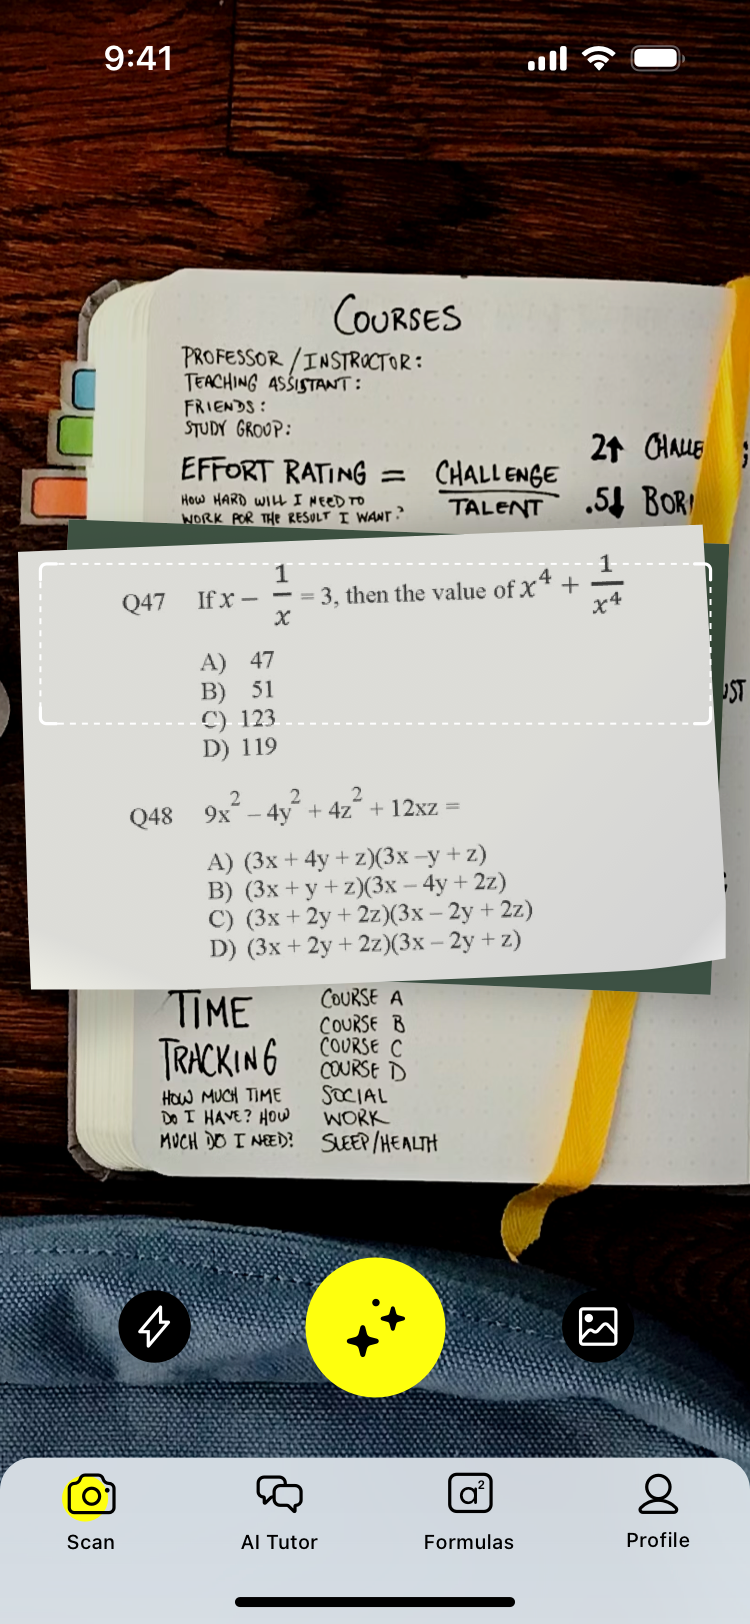 9:41
COURSES
PROFESSOR/INSTRUCTOR:
TEACHING ASSISTANT:
FRIENDS:
STUDY GROUP:
EFFORT RATING = CHALLENGE / TALENT
HOW HARD WILL I NEED TO
WORK FOR THE RESULT I WANT?
2↑
.5↓
Q47 If x − 1/x = 3, then the value of x⁴ + 1/x⁴
A) 47
B) 51
C) 123
D) 119
Q48 9x² – 4y² + 4z² + 12xz =
A) (3x + 4y + z)(3x –y + z)
B) (3x + y + z)(3x – 4y + 2z)
C) (3x + 2y + 2z)(3x – 2y + 2z)
D) (3x + 2y + 2z)(3x – 2y + z)
TIME
TRACKING
HOW MUCH TIME
DO I HAVE? HOW
MUCH DO I NEED?
COURSE A
COURSE B
COURSE C
COURSE D
SOCIAL
WORK
SLEEP/HEALTH
Scan
AI Tutor
a²
Formulas
Profile